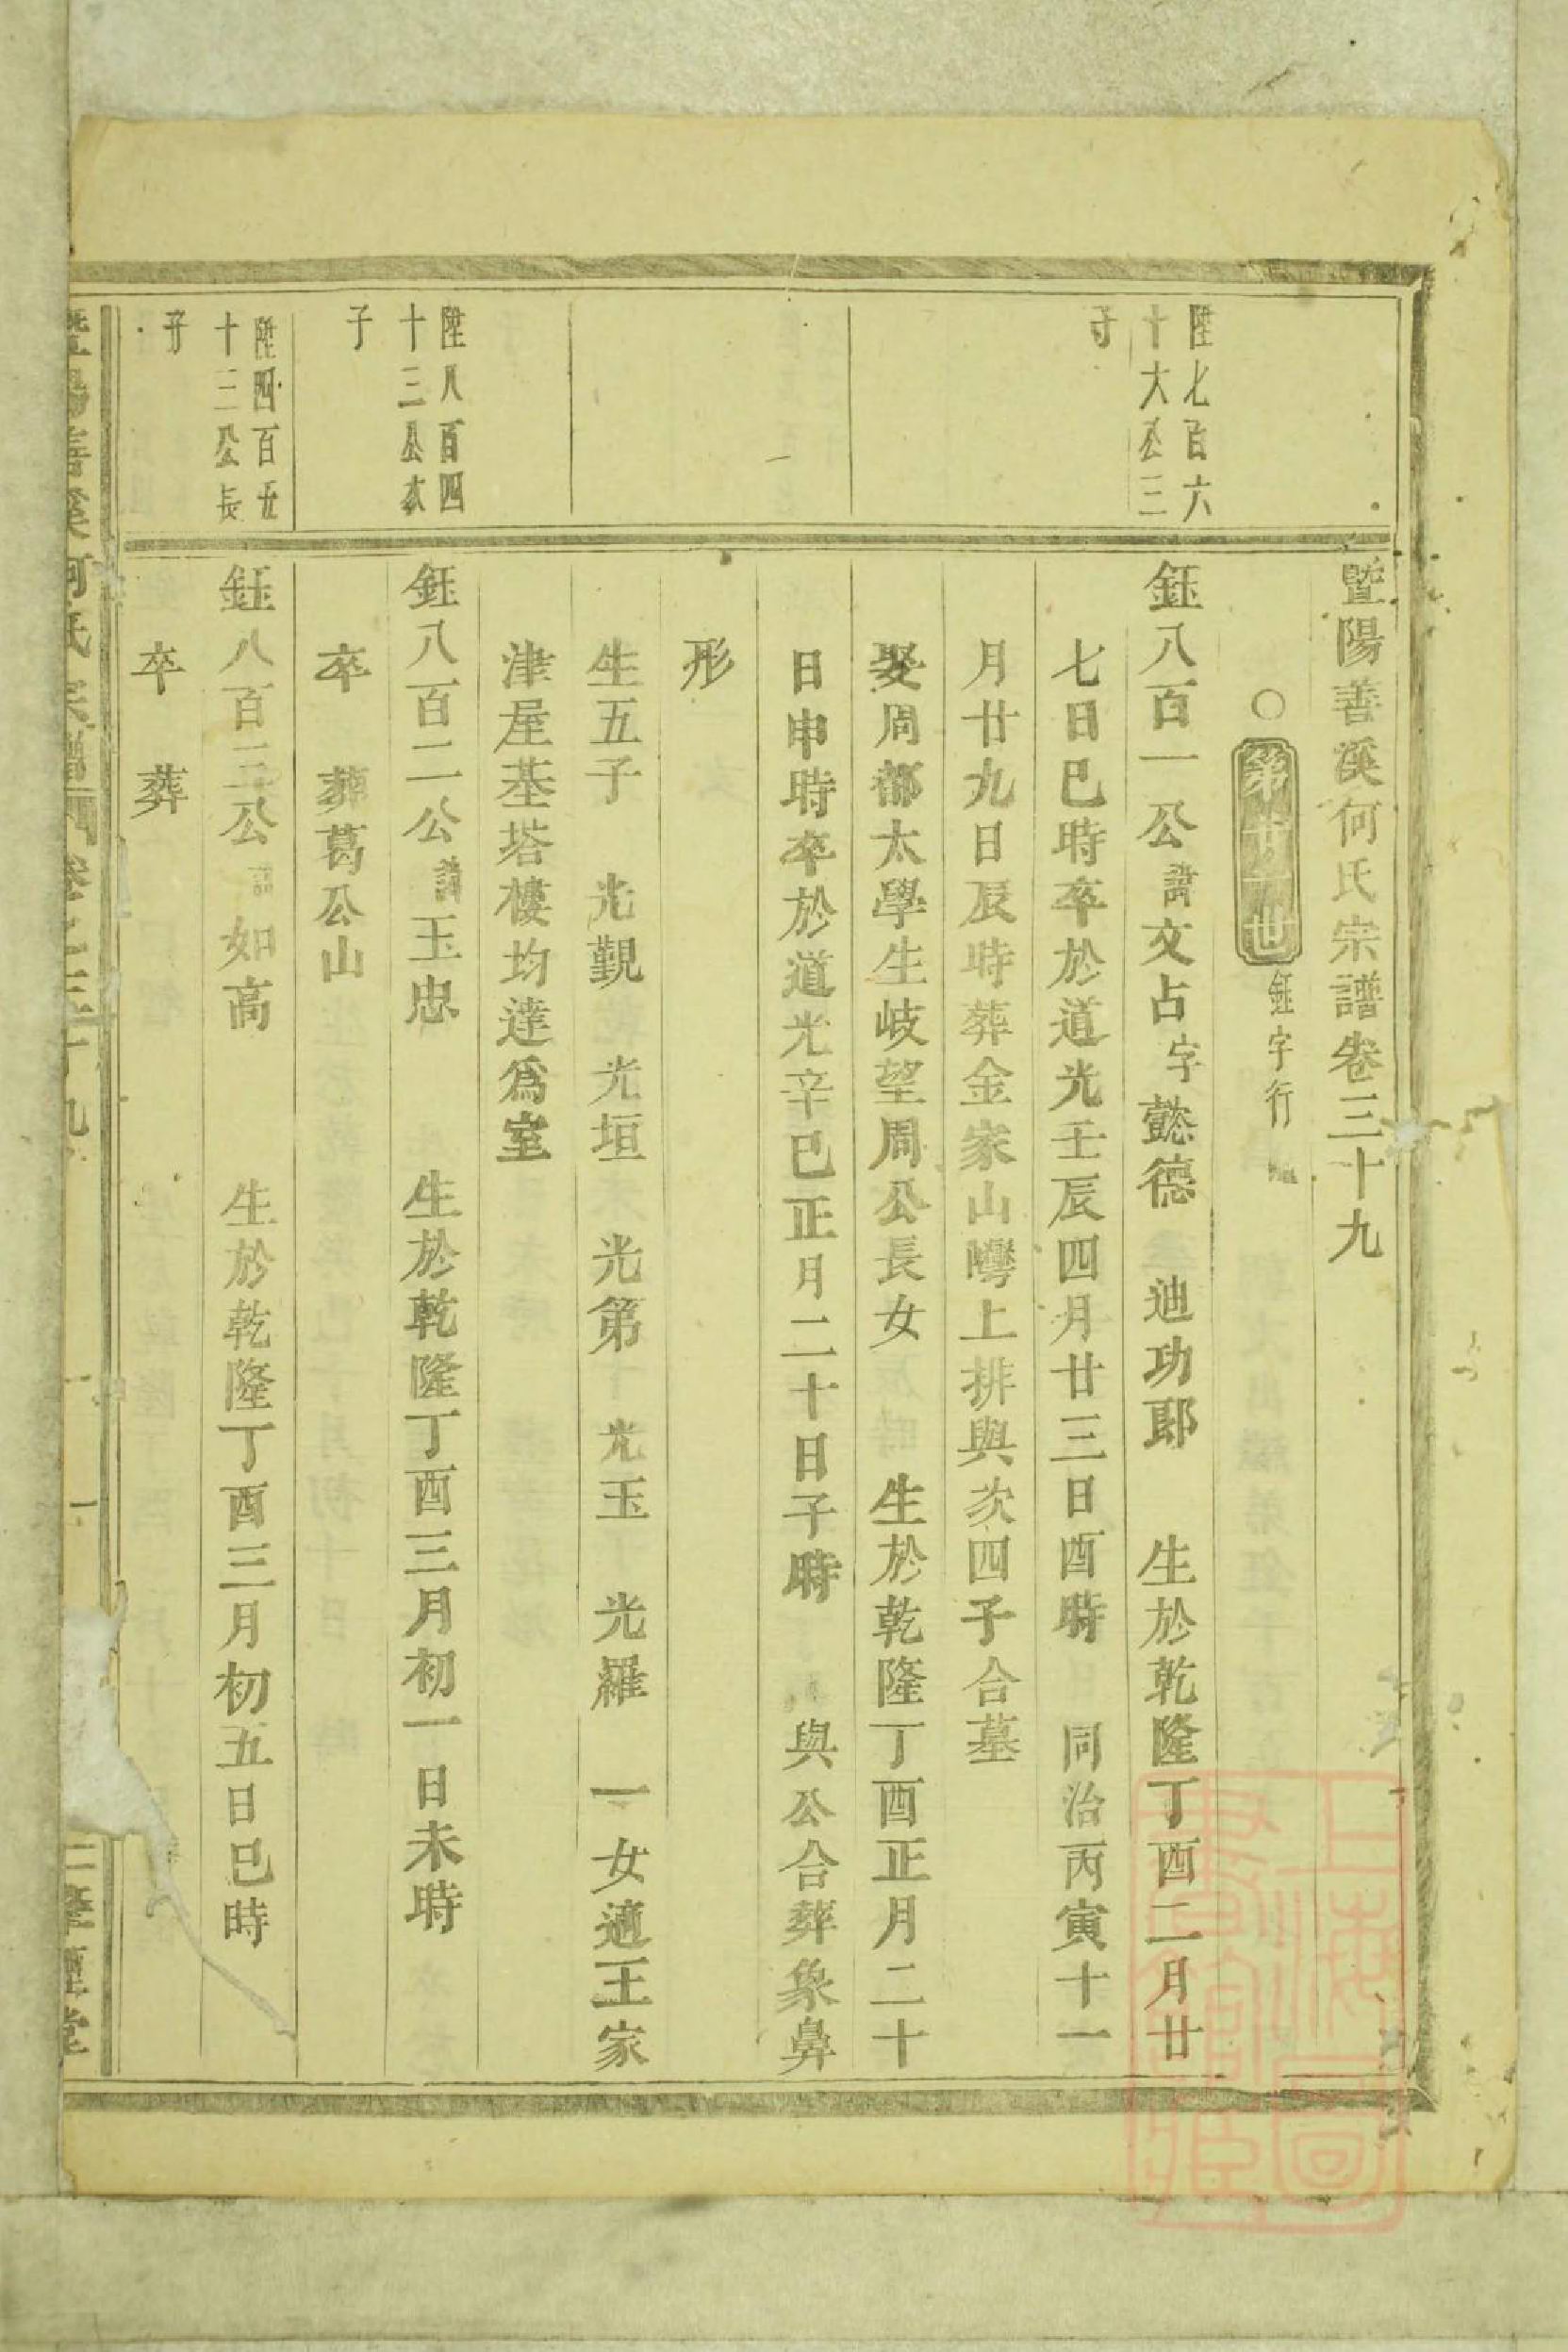 暨陽善溪何氏宗譜卷三十九
○第廿五世鈺字行
陞七百六
十大公三
子
鈺八百一公諱文占字懿德 迪功郎 生於乾隆丁酉二月廿
七日巳時卒於道光壬辰四月廿三日酉時 同治丙寅十一
月廿九日辰時葬金家山灣上排與次四子合墓
娶周都太學生岐望周公長女 生於乾隆丁酉正月二十
日申時卒於道光辛巳正月二十日子時 與公合葬象鼻
形
生五子 光觀 光垣 光第 光玉 光羅 一女適王家
津屋基塔樓均達為室
陞八百四
十三公次
子
鈺八百二公諱玉忠 生於乾隆丁酉三月初一日未時
卒 葬葛公山
陞四百五
十三公長
子
鈺八百三公諱如高 生於乾隆丁酉三月初五日巳時
卒 葬
善溪何氏宗譜 卷之三十九 一
上海圖書館藏